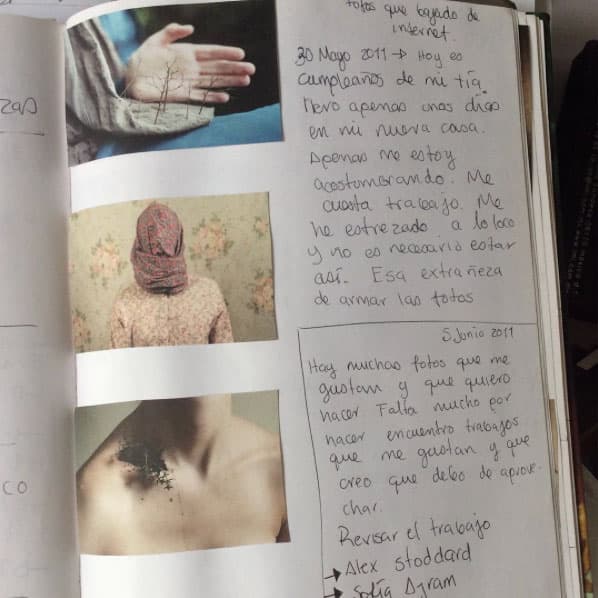 zas
co
fotos que bajado de
internet.
30 Mayo 2011 → Hoy es
cumpleaños de mi tía.
llevo apenas unos días
en mi nueva casa.
Apenas me estoy
acostumbrando. Me
cuesta trabajo. Me
he estrezado a lo loco
y no es necesario estar
así. Esa extrañeza
de armar las fotos
5 Junio 2011
Hay muchas fotos que me
gustan y que quiero
hacer Falta mucho por
hacer encuentro trabajos
que me gustan y que
creo que debo de aprove-
char.
Revisar el trabajo
→ Alex Stoddard
→ Sofía Ajram